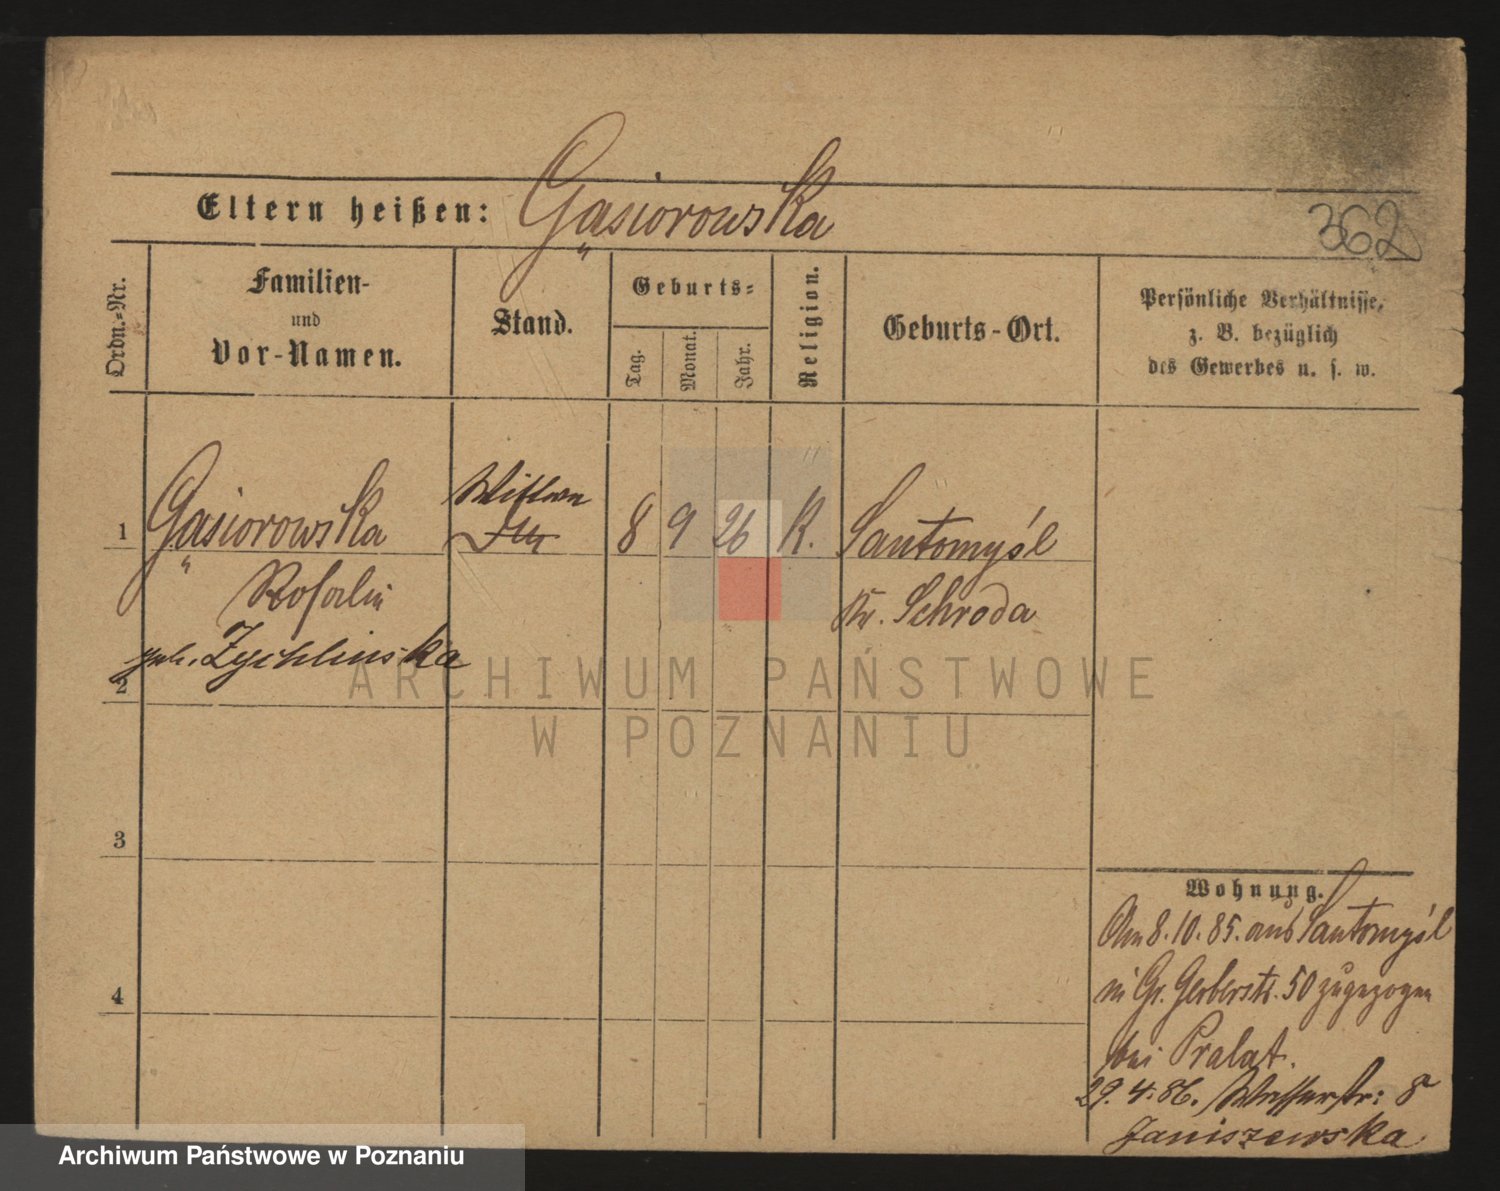 Gąsiorowska
Eltern heißen:
362
Ordn.=Nr.
Familien-
und
Vor-Namen.
Stand.
Geburts=
Tag.
Monat.
Jahr.
Religion.
Geburts-Ort.
Persönliche Verhältnisse,
z. B. bezüglich
des Gewerbes u. s. w.
1 Gąsiorowska Wittwe 8 9 26 K. Santomyśl
Rosalie Kr. Schroda
geb. Zychlinska
2
ARCHIWUM PAŃSTWOWE
W POZNANIU
3
4
Wohnung.
Am 8.10.85. aus Santomyśl
in Gr. Gerberstr. 50 zugezogen
bei Pralat.
29.4.86. Wasserstr: 8
Janiszewska
Archiwum Państwowe w Poznaniu